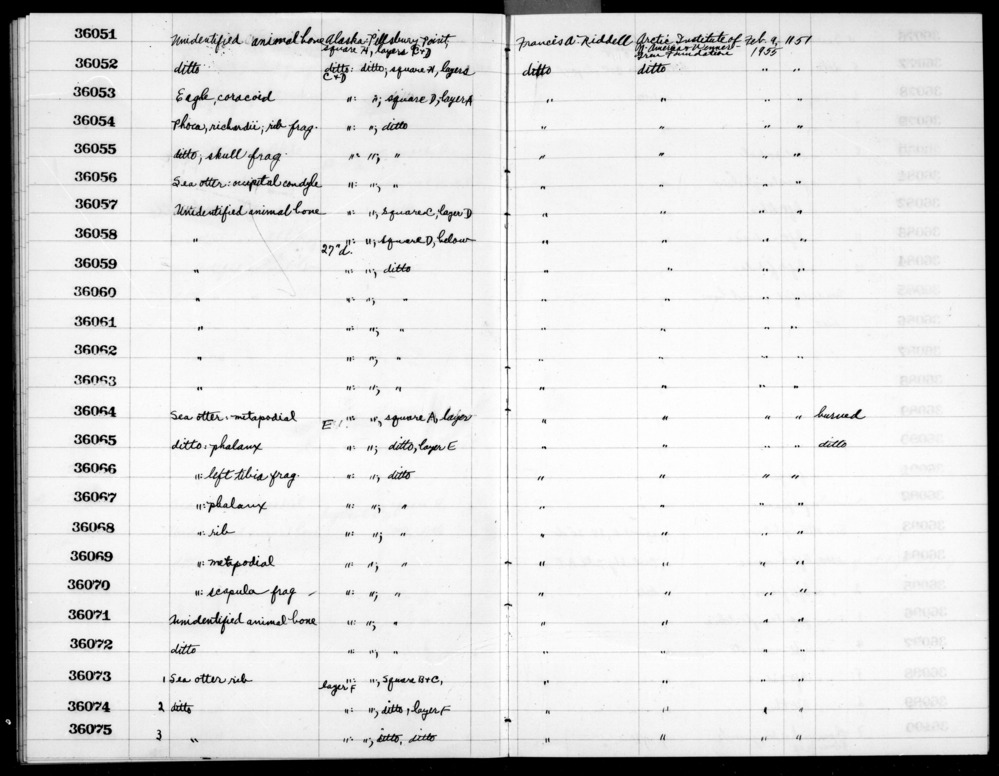 36051 Unidentified animal bone Alaska: Pillsbury Point, square H, layers B+D Francis A. Riddell Arctic Institute of N. American-Wenner-Gren Foundation Feb. 9, 1955 1151
36052 ditto ditto: ditto; square H, layers C+D ditto ditto " " "
36053 Eagle, coracoid ": "; square D, layer A " " " "
36054 Phoca, richardii; rib frag. ": "; ditto " " " "
36055 ditto; skull frag. ": "; " " " " "
36056 Sea otter: occipital condyle ": "; " " " " "
36057 Unidentified animal bone ": "; square C, layer D " " " "
36058 " ": "; square D, below 27" d. " " " "
36059 " ": "; ditto " " " "
36060 " ": "; " " " " "
36061 " ": "; " " " " "
36062 " ": "; " " " " "
36063 " ": "; " " " " "
36064 Sea otter: metapodial ": "; square A, layer E " " " " burned
36065 ditto: phalanx ": "; ditto, layer E " " " " ditto
36066 ": left tibia frag. ": "; ditto " " " "
36067 ": phalanx ": "; " " " " "
36068 ": rib ": "; " " " " "
36069 ": metapodial ": "; " " " " "
36070 ": scapula frag ": "; " " " " "
36071 Unidentified animal bone ": "; " " " " "
36072 ditto ": "; " " " " "
36073 1 Sea otter rib ": "; Square B+C, layer F " " " "
36074 2 ditto ": "; ditto, layer F " " " "
36075 3 " ": "; ditto, ditto " " " "